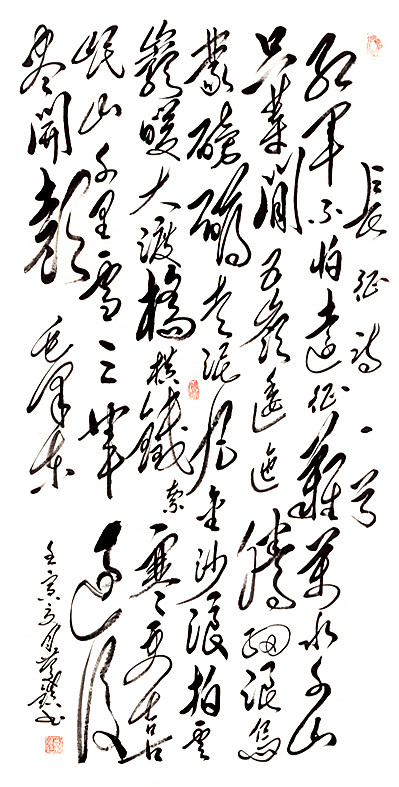 長征詩一首
紅軍不怕遠征難萬水千山
只等閒五嶺逶迤騰細浪烏
蒙磅礴走泥丸金沙浪拍雲
巖暖大渡橋橫鐵索寒更喜
岷山千里雪三軍過後
盡開顏毛澤東
壬寅